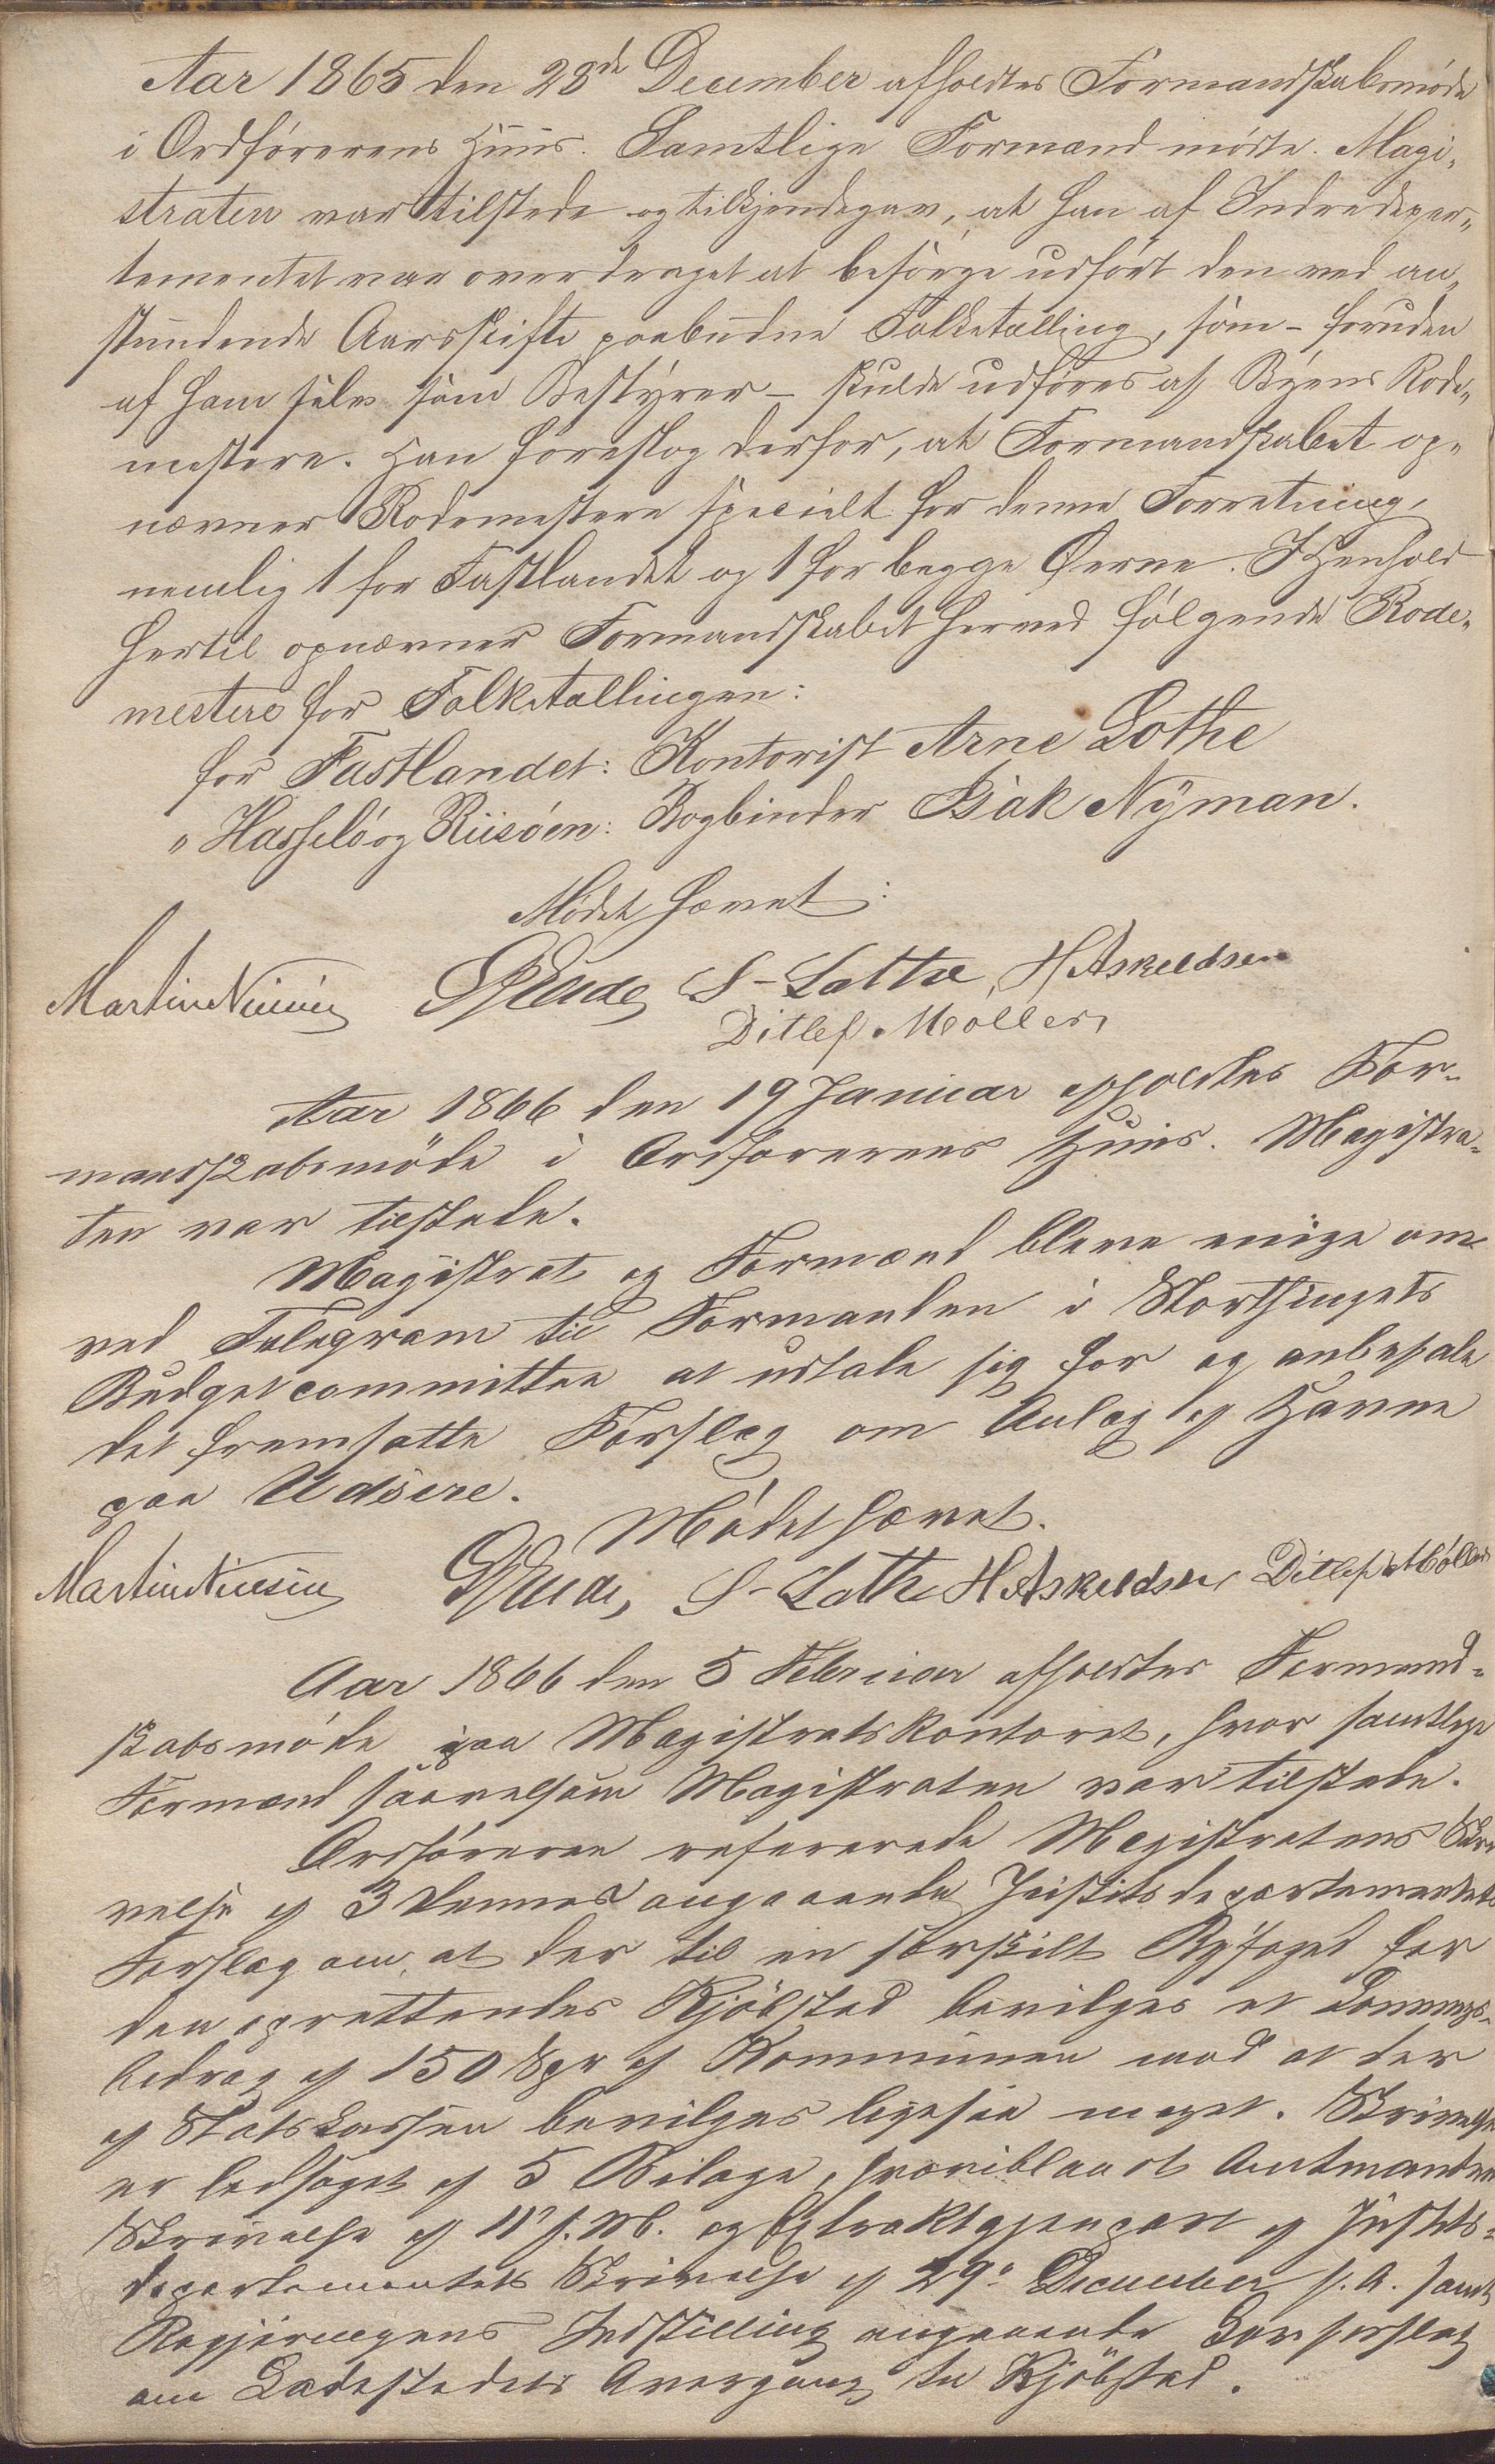 Aar 1865 den 28de December afholdtes Formandskabsmøde
i Ordførerens Huus. Samtlige Formænd mødte. Magi„
straten var tilstede og tilkjendegav, at han af Indredepar„
tementet var overdraget at besørge udført den ved an„
stundende Aarsskifte paabudne Folketælling, som - foruden
af ham selv som Bestyrer - skulde udføres af Byens Rode„
mestere. Han foreslog derfor, at Formandskabet op„
nævner Rodemestere specielt for denne Forretning,
nemlig 1 for Fastlandet og 1 for begge Øerne. I Henhold
hertil opnævner Formandskabet herved følgende Rode„
mestere for Folketællingen:
for Fastlandet: Kontorist Arne Lothe
„ Hasselö og Riisøen: Bogbinder Isak Nÿman.
Mødet hævet:
Martin Nielsen S- Lothe H Askeldsen
Ditlef Møller
Aar 1866 den 19 Januar afholdtes For-
mandskabsmøde i Ordførerens Huus. Magistra-
ten var tilstede.
Magistrat og Formænd bleve enige om
ved Telegram til Formanden i Storthingets
Budgetcommittee at udtale sig for og anbefale
det fremsatte Forslag om Anlæg af Havne
paa Udsire.
Mødet hævet.
Martin Nielsen S- Lothe H Askeldsen Ditlef Møller
Aar 1866 den 5 Februar afholdtes Formand-
skabsmøde paa Magistratskontoret, hvor samtlige
Formænd saavelsom Magistraten var tilstede.
Ordføreren refererede Magistratens Skri
velse af 3 dennes angaaende Justitsdepartementets
Forslag om, at der til en særskilt Byfoged for
den oprettendes Kjöbsted bevilges et Lønnings-
bidrag af 150 Spd af Kommunen mod at der
af Statskassen bevilges ligesaa meget. Skrivelsen
er ledsaget af 5 Bilage, hvoriblandt Amtmandens
Skrivelse af 11' f. M. og Extraktgjenpart af Justits-
departementets Skrivelse af 29de December f. A. samt
Regjeringens Indstilling angaaende Lovforslag
om Ladestedets Overgang til Kjöbsted.